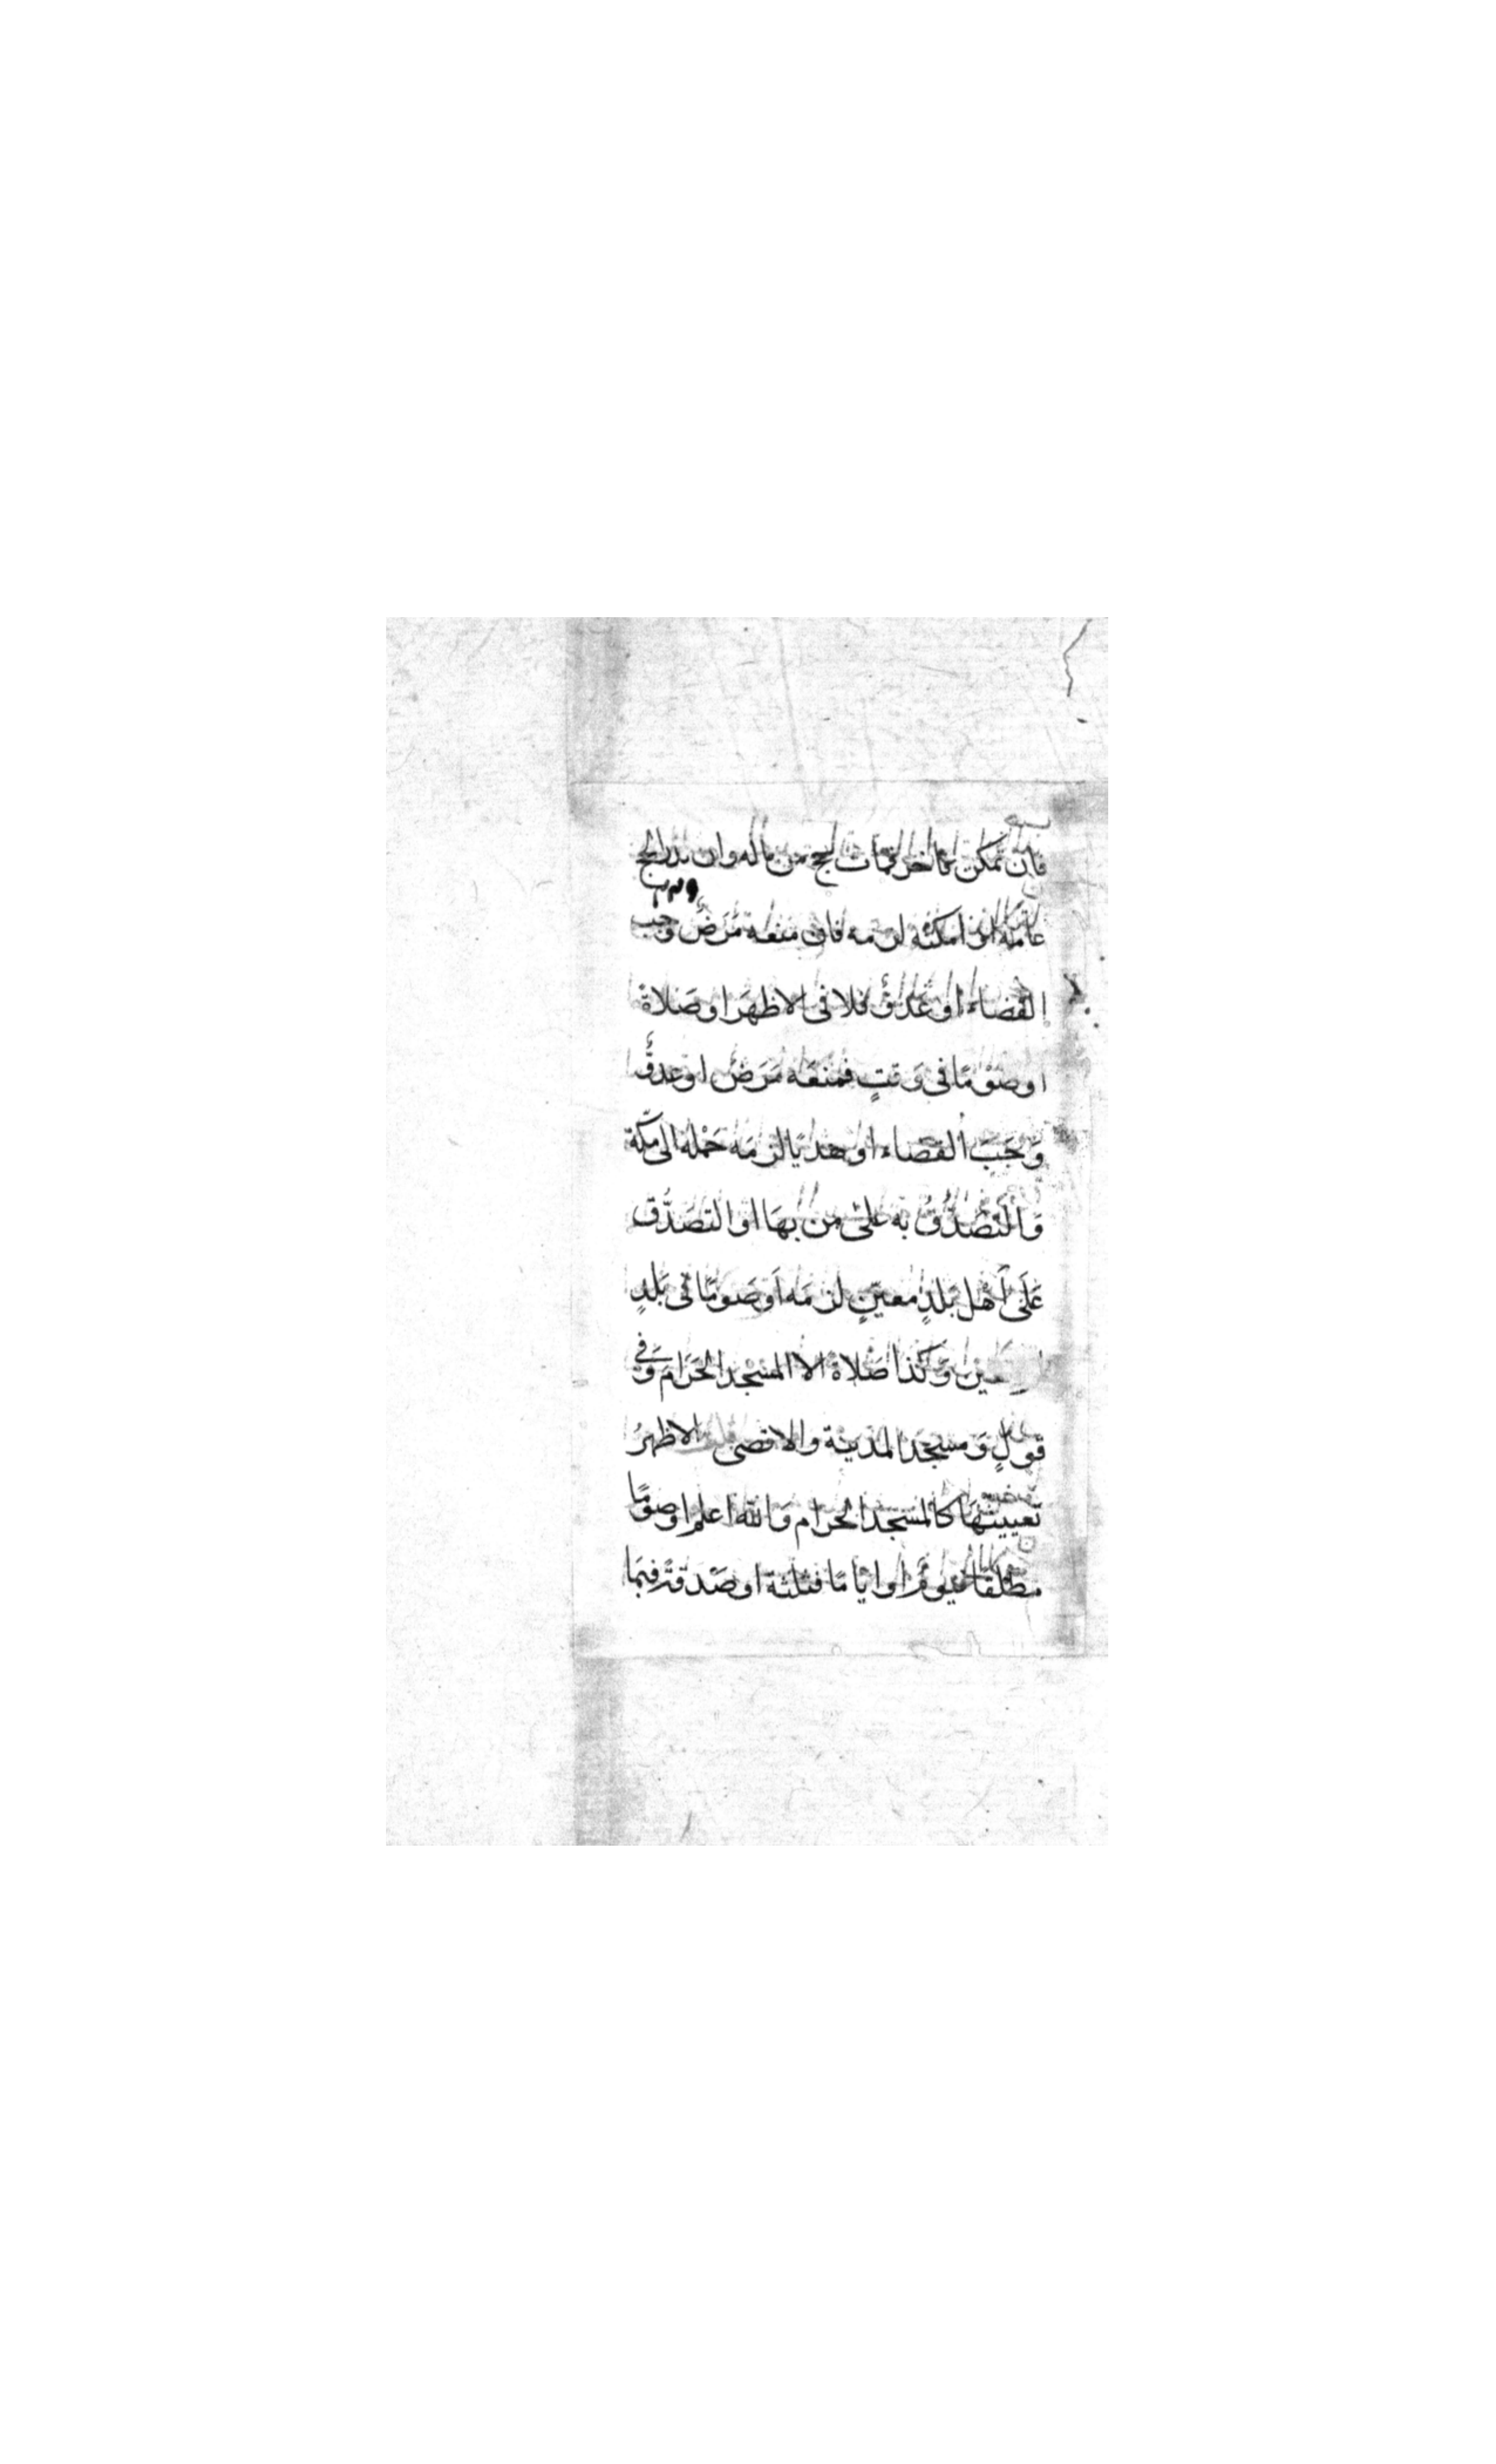 فان تمكن فاخر فمات حج من ماله وان نذر الحج
عامه وامكنه لزمه فان منعه مَرَضٌ وجب
القضاء او عَدُوٌّ فلا فى الاظهَر او صَلاة
او صَوْمًا فى وَقتٍ فمنعَه مَرَضٌ او عدوٌّ
وَجَبَ القضاء او هديًا لزمَه حَمْله الى مكّة
وَالتصَدُّقُ به على من بهَا او التصَدُّق
عَلَى اَهْل بَلدٍ معيّنٍ لزمَه اَو صَومًا فى بَلدٍ
وَكذا صَلاة الا المسْجد الحَرَام وَفى
قولٍ وَمسجدَ المدينة والاقصى قلت الاظهرُ
تعيينهَا كالمسَجد الحرام وَالله اعلم او صوْمًا
مطلقًا فيومٌ او ايامًا فثلثة او صَدقةً فبمَا